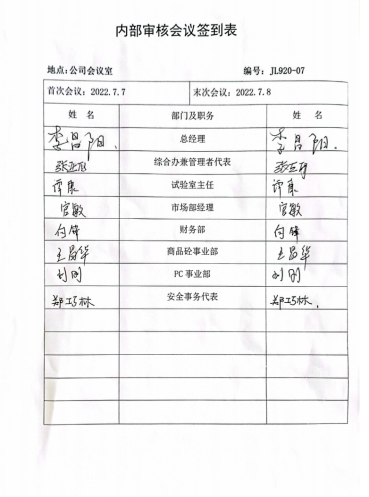 内部审核会议签到表
地点：公司会议室 编号：JL920-07
首次会议：2022.7.7 末次会议：2022.7.8
姓 名 部门及职务 姓 名
李昌阳. 总经理 李昌阳.
综合办兼管理者代表
谭康 试验室主任 谭康
官敏 市场部经理 官敏
付锋 财务部 付锋
王昌华 商品砼事业部 王昌华
刘刚 PC 事业部 刘刚
郑巧林 安全事务代表 郑巧林.